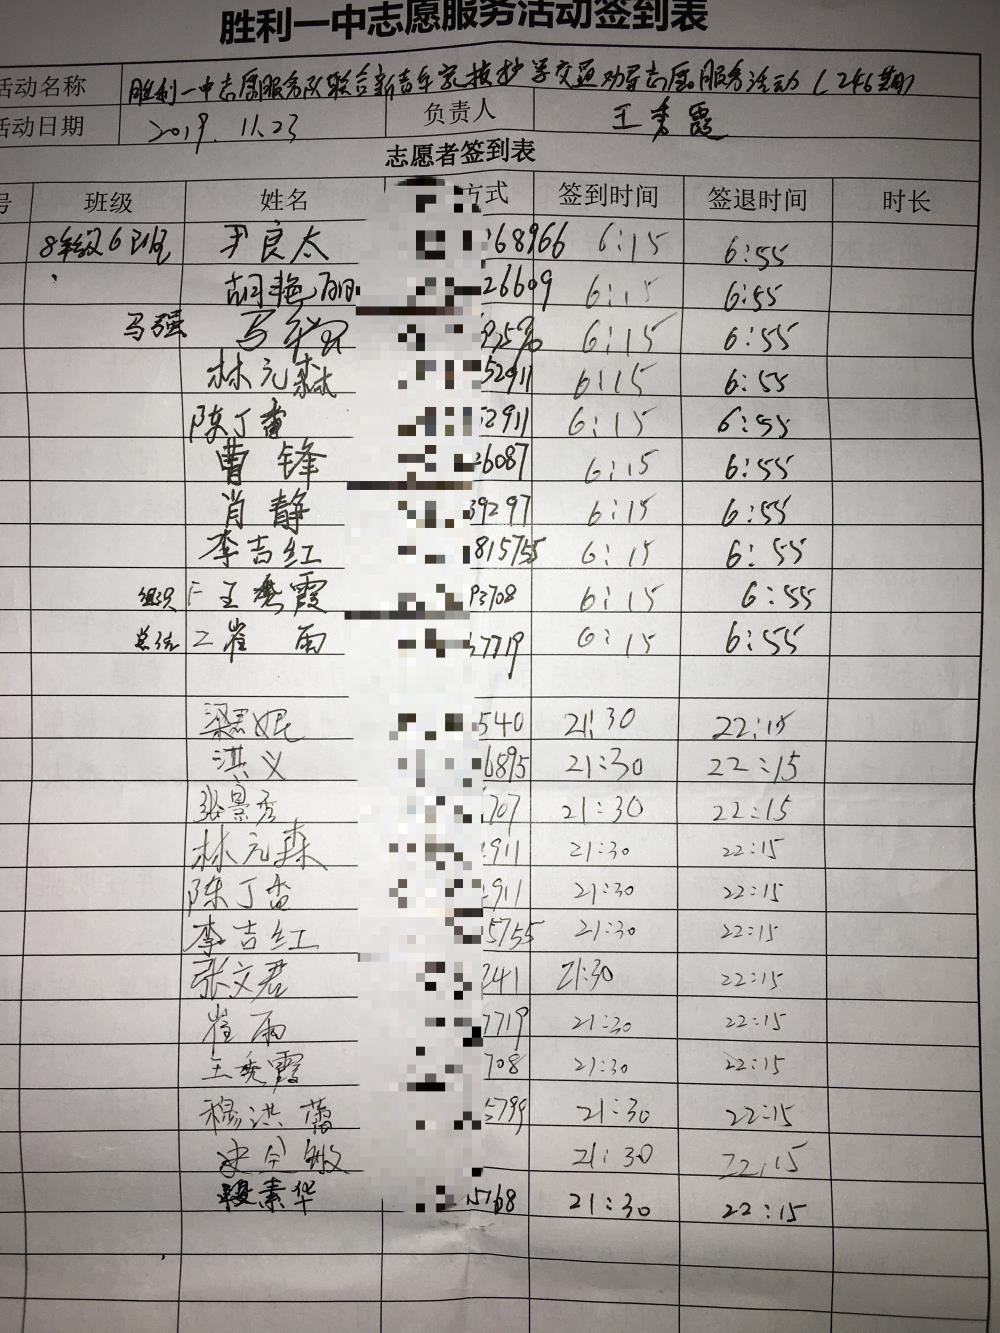 胜利一中志愿服务活动签到表
活动名称 胜利一中志愿服务队联合新青年家校护学交通劝导志愿服务活动（246期）
活动日期 2019.11.23 负责人 王秀霞
志愿者签到表
号 班级 姓名 方式 签到时间 签退时间 时长
8年级6班 尹良太 68966 6:15 6:55
胡艳丽 26609 6:15 6:55
马强 6:15 6:55
林元森 52911 6:15 6:55
陈丁香 2911 6:15 6:55
曹锋 6087 6:15 6:55
肖静 39297 6:15 6:55
李吉红 815755 6:15 6:55
组织 王秀霞 93708 6:15 6:55
总结 崔雨 7719 6:15 6:55
梁 妮 540 21:30 22:15
洪义 6895 21:30 22:15
张景秀 707 21:30 22:15
林元森 911 21:30 22:15
陈丁香 911 21:30 22:15
李吉红 5755 21:30 22:15
张文君 241 21:30 22:15
崔雨 7719 21:30 22:15
王秀霞 708 21:30 22:15
穆洪 5799 21:30 22:15
21:30 22:15
段素华 15768 21:30 22:15